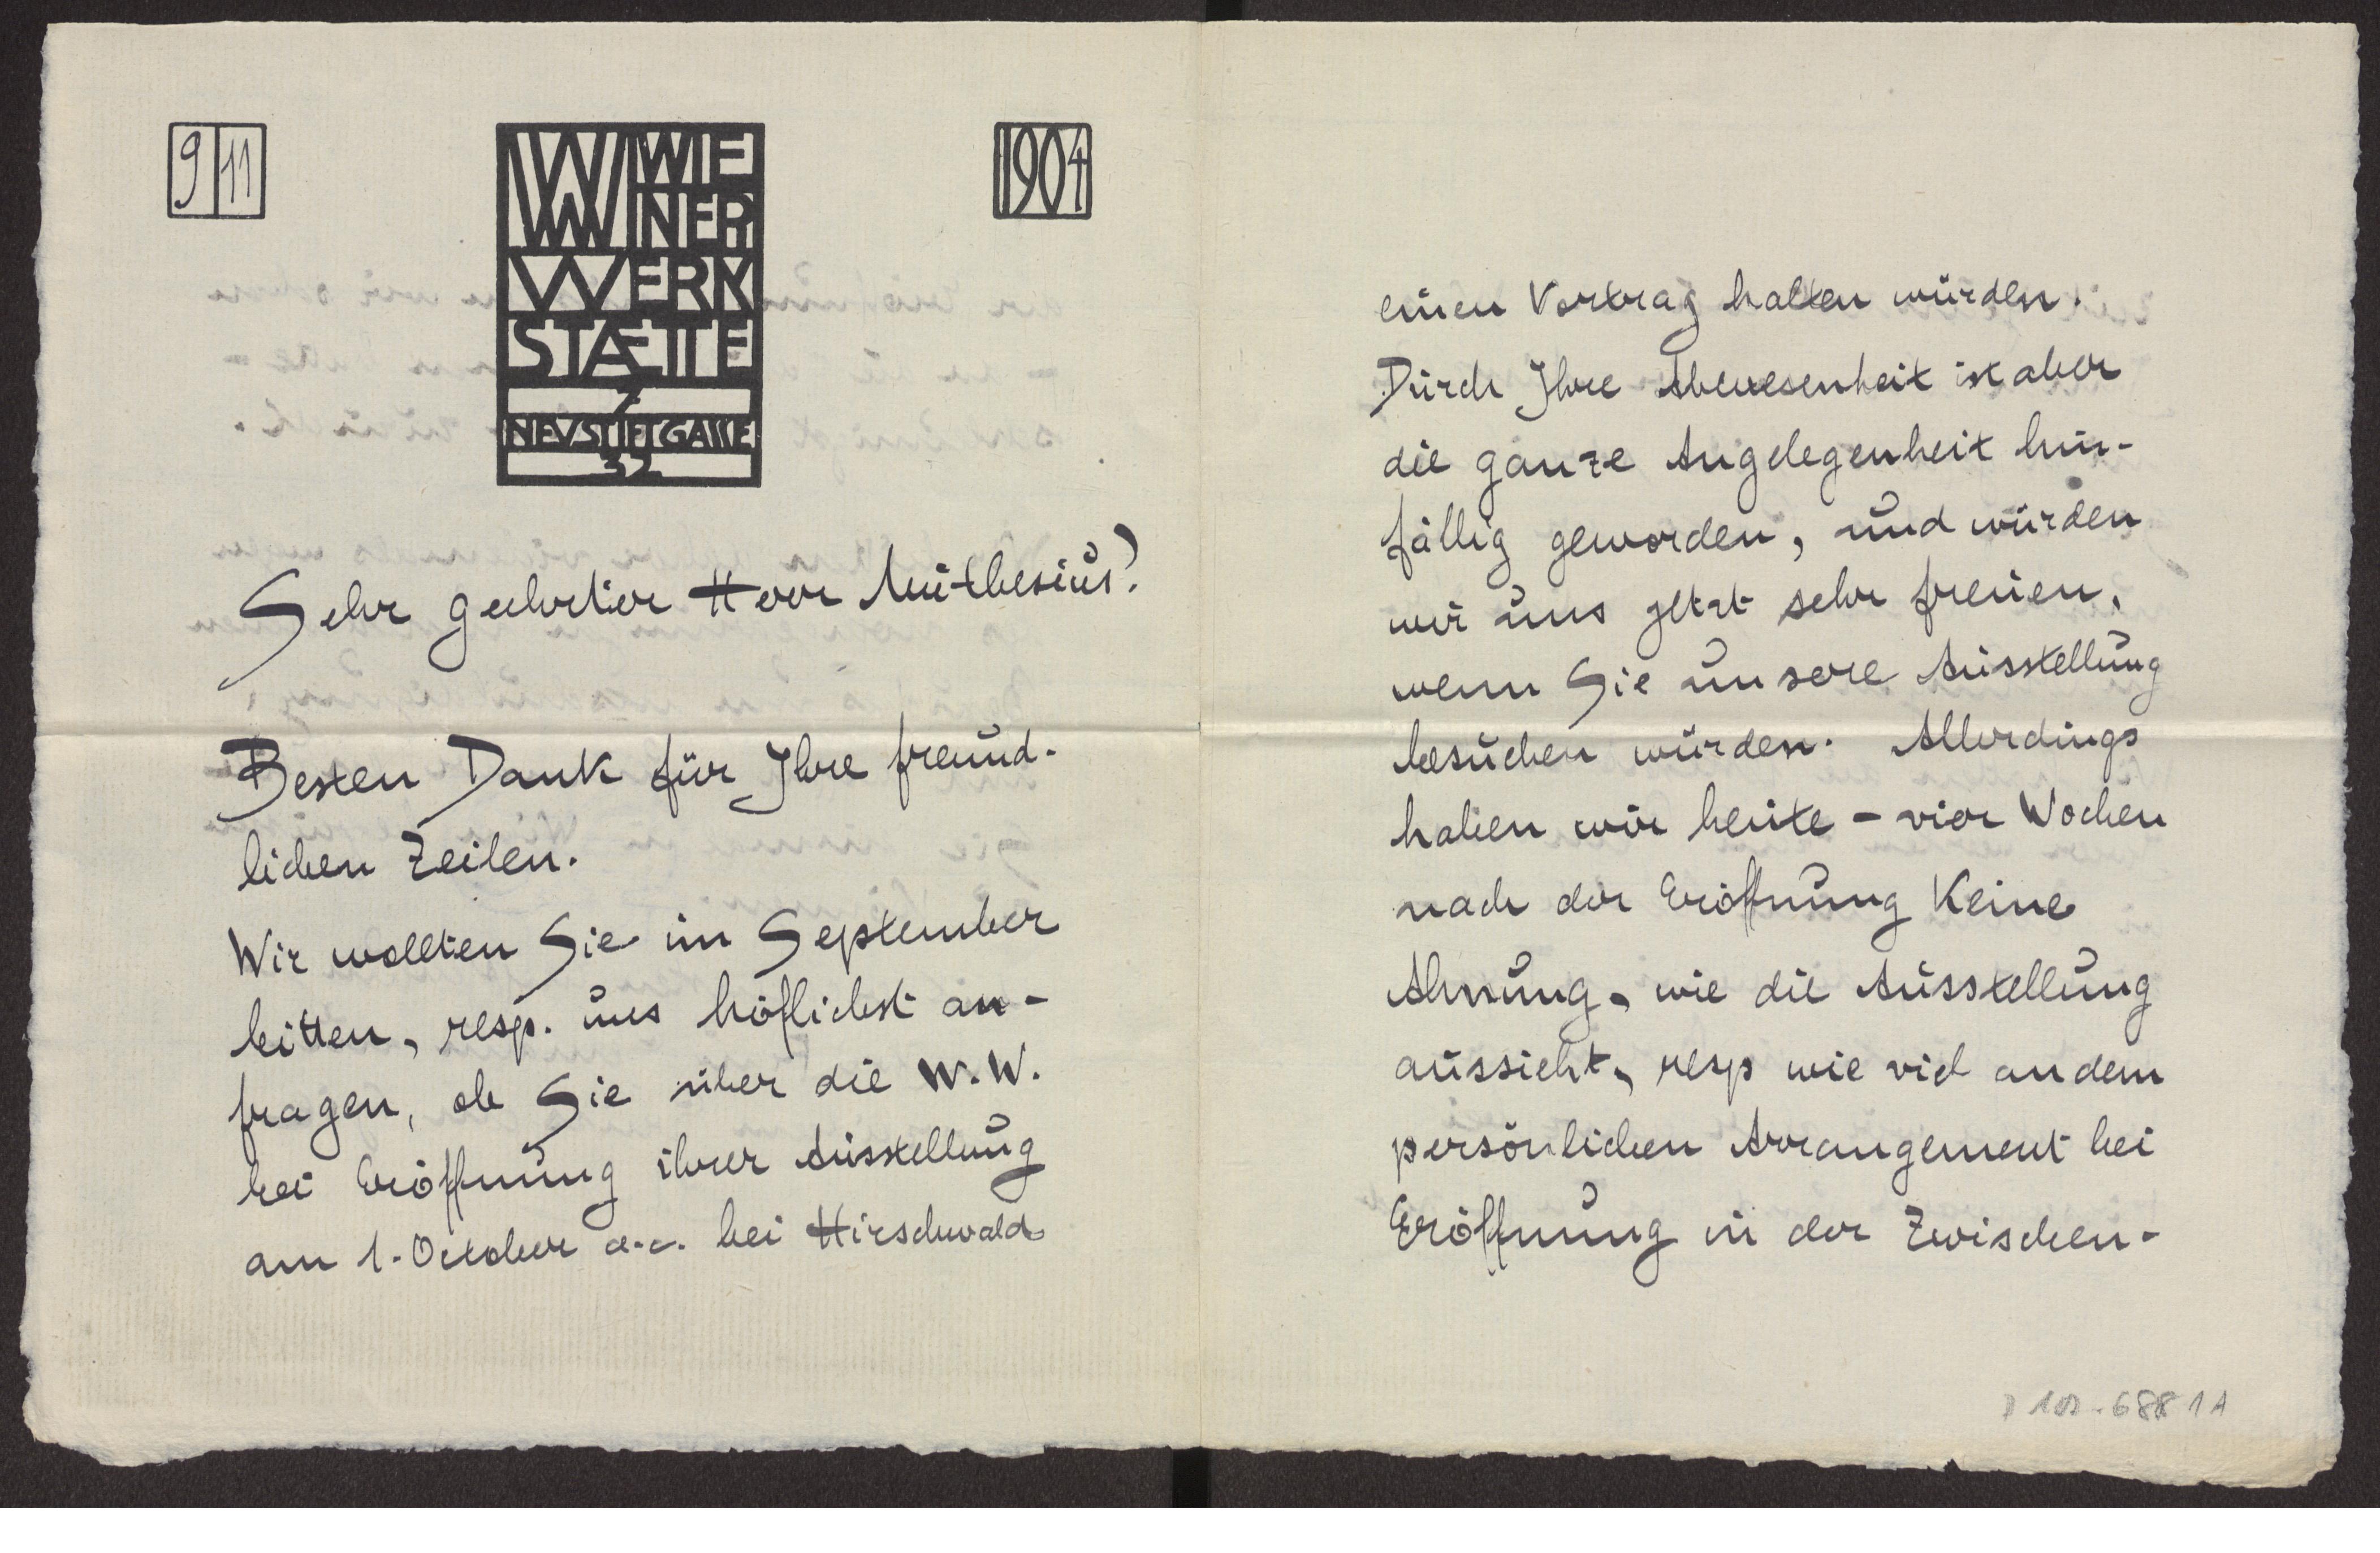 9 11
WIE
NER
WERK
STÆTTE
7
NEUSTIFTGASSE
32
1904
Sehr geehrter Herr Muthesius!
Besten Dank für Ihre freund-
lichen Zeilen.
Wir wollten Sie im September
bitten, resp. uns höflichst an-
fragen, ob Sie über die W. W.
bei Eröffnung ihrer Ausstellung
am 1. October a. c. bei Hirschwald
einen Vortrag halten würden.
Durch Ihre Abwesenheit ist aber
die ganze Angelegenheit hin-
fällig geworden, und würden
wir uns jetzt sehr freuen,
wenn Sie unsere Ausstellung
besuchen würden. Allerdings
haben wir heute – vier Wochen
nach der Eröffnung keine
Ahnung, wie die Ausstellung
aussieht, resp wie viel an dem
persönlichen Arrangement bei
Eröffnung in der Zwischen-
6881A